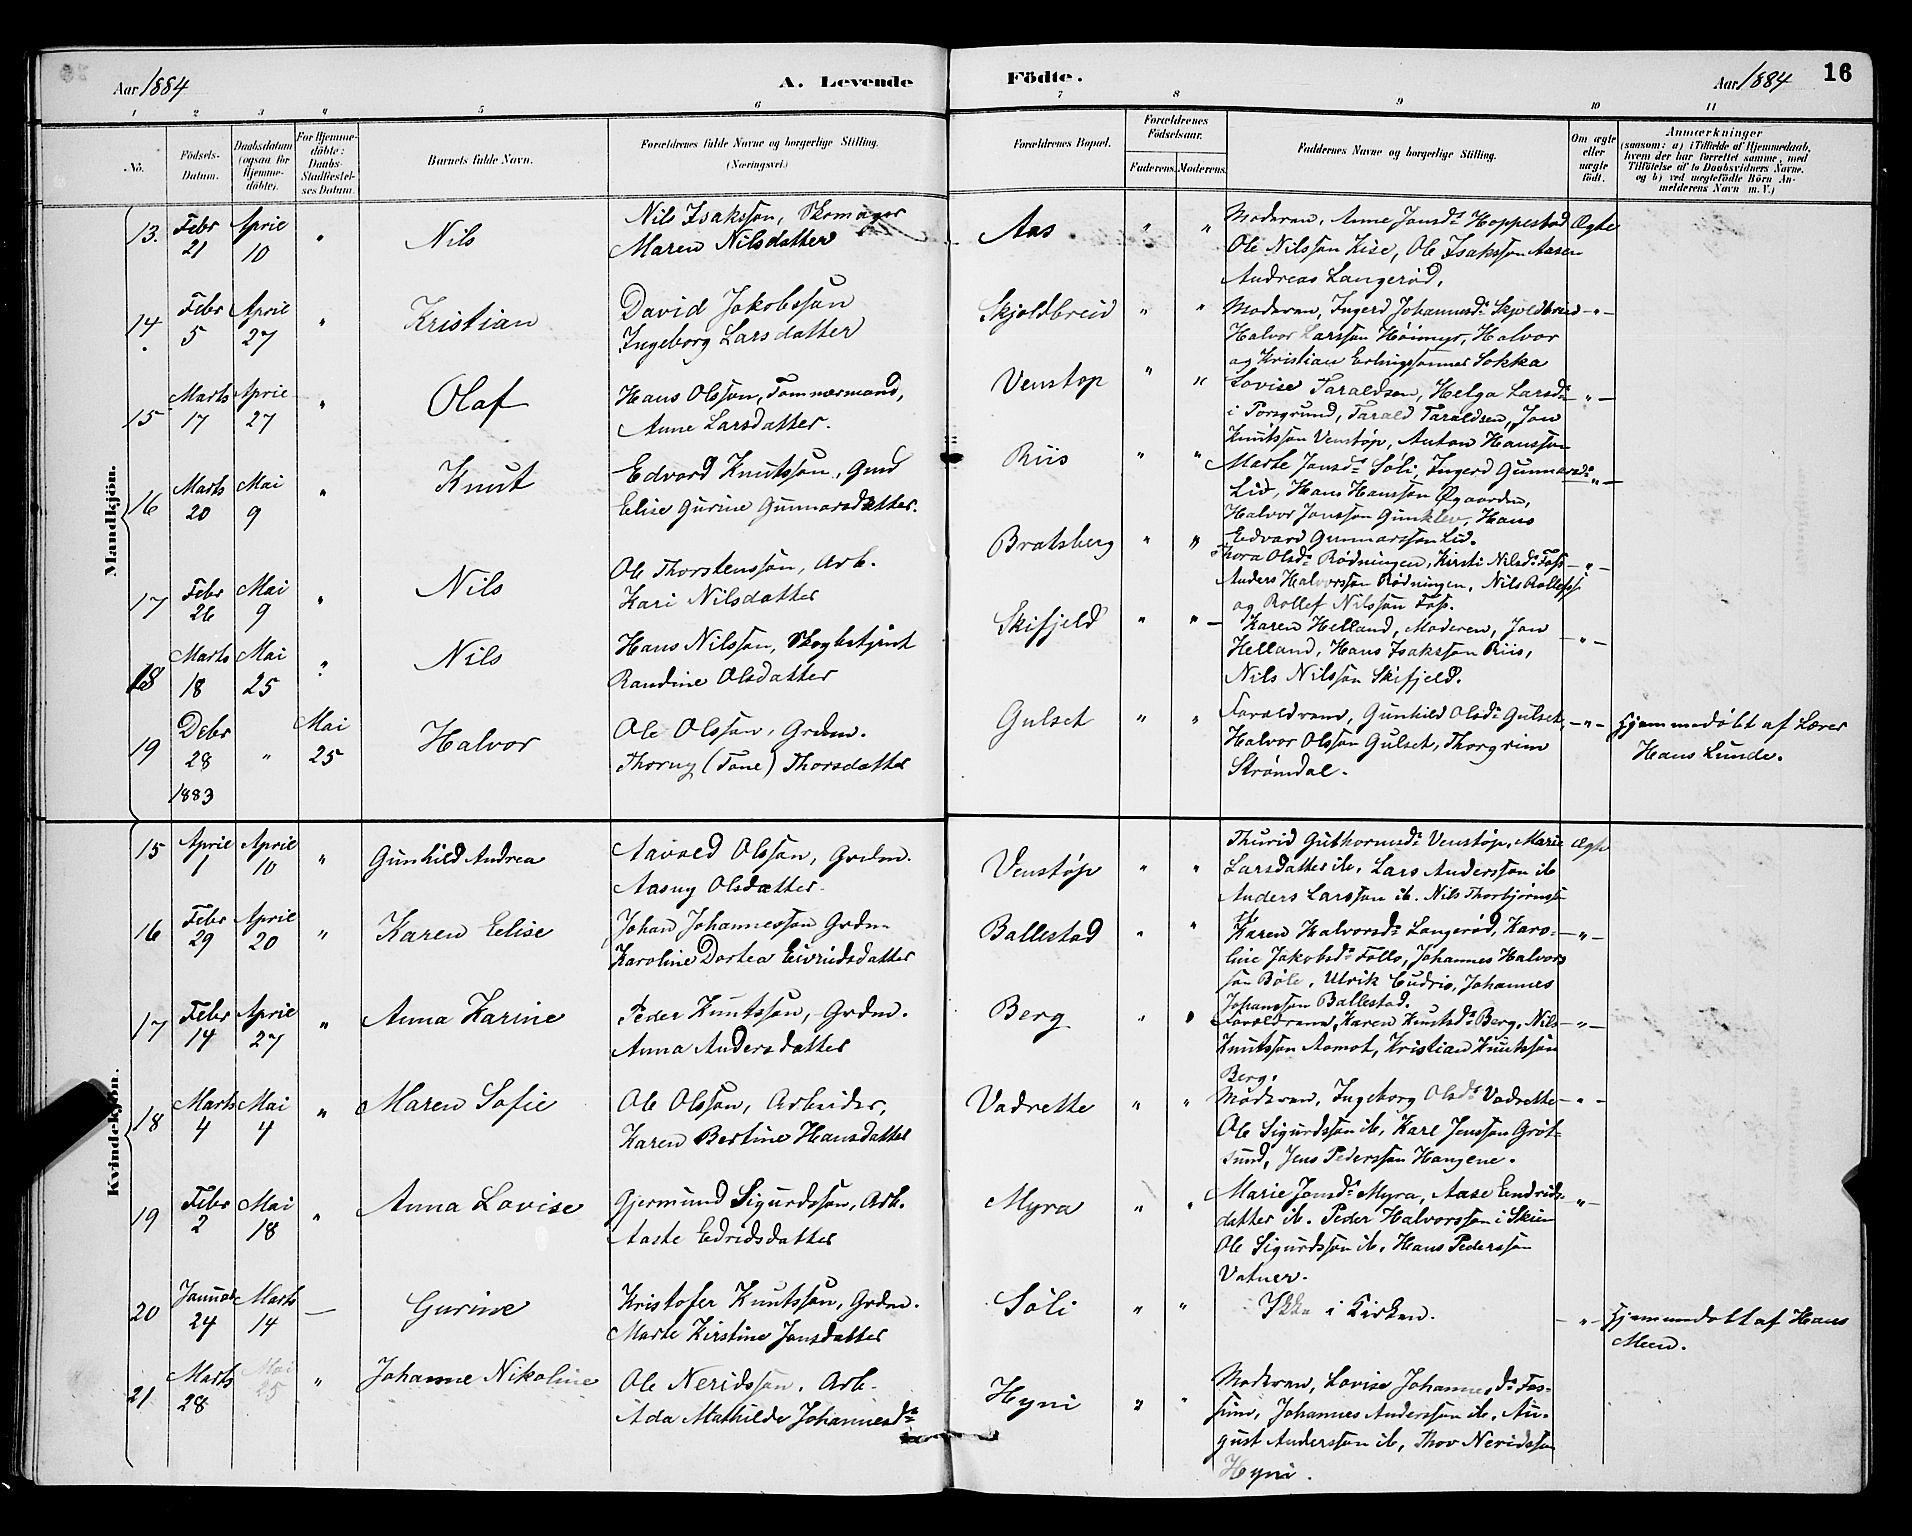 Aar 1884
A. Levende
Födte.
Aar 1884
16
1 2 3 4 5 6 7 8 9 10 11
No.
Födsels-Datum.
Daabsdatum (ogsaa for Hjemme-döbte).
For Hjemme-döbte: Daabs-Stadfæstel-ses Datum.
Barnets fulde Navn.
Forældrenes fulde Navne og borgerlige Stilling. (Næringsvei.)
Forældrenes Bopæl.
Forældrenes Födselsaar.
Faderens. Moderens.
Faddernes Navne og borgerlige Stilling.
Om ægte eller uægte födt.
Anmærkninger
(saasom: a) i Tilfælde af Hjemmedaab, hvem der har forrettet samme, med Tilföielse af to Daabsvidners Navne, og b) ved uægtefödte Börn An-melderens Navn m. V.)
Mandkjön.
13. Febr 21 April 10 " Nils
Nils Isaksson, Skomager
Maren Nilsdatter
Aas " "
Moderen, Anne Jonsdr Hoppestad Ægte
Ole Nilsson Kise, Ole Isaksson Aasen
Andreas Langerød.
14. Febr 5 April 27 " Kristian
David Jakobsson
Ingeborg Larsdatter
Skjoldbreid " "
Moderen, Ingerd Johannesdr Skjoldbreid -"-
Halvor Larsson Høimyr, Halvor
og Kristian Erlingssønner Sokka
15 Marts 17 April 27 " Olaf
Hans Olsson, Tømmermand,
Anne Larsdatter.
Venstøp " "
Lovise Taraldsen, Helga Larsdr -"-
i Porsgrund, Tarald Taraldsen, Jon
Knutsson Venstøp, Anton Hansson
16 Marts 20 Mai 9 " Knut
Edvard Knutsson, Grdm
Elise Gurine Gunnarsdatter.
Riis " "
Marte Jonsdr Søli, Ingerd Gunnarsdr -"-
Lid, Hans Hansson Øgaarden,
Halvor Jonsson Gunklev, Hans
Edvard Gunnarsson Lid.
17 Febr 26 Mai 9 " Nils
Ole Thorstensson, Arb.
Kari Nilsdatter
Bratsberg " "
Thora Olsdr Rødningen, Kirsti Nilsdr Foss -"-
Anders Halvorsson Rødningen, Nils Rollefss
og Rollef Nilsson Foss.
18 Marts 18 Mai 25 " Nils
Hans Nilsson, Skogbetjent
Randine Olsdatter
Skifjeld " " -
Karen Helland, Moderen, Jon -"-
Helland, Hans Isaksson Riis,
Nils Nilsson Skifjeld.
19 Debr 28 1883 " Mai 25 Halvor
Ole Olsson, Grdm.
Thorny (Tone) Thorsdatter
Gulset " "
Forældrene, Gunhild Olsdr Gulset, -"- Hjemmedøbt af Lærer
Halvor Olsson Gulset, Thorgrim Hans Lunde.
Strømdal.
Kvindekjön.
15 April 1 April 10 " Gunhild Andrea
Aavald Olsson, Grdm.
Aasny Olsdatter.
Venstøp " "
Thurid Guthormsdr Venstøp, Marie Ægte
Larsdatter ib, Lars Andersson ib
Anders Larsson ib. Nils Thorbjørnss
16 Febr 29 April 20 " Karen Elise
Johan Johannesson Grdm
Karoline Dortea Eivindsdatter
Ballestad " "
Karen Halvorsdr Langerød, Karo- -"-
line Jakobsdr Follo, Johannes Halvors
søn Bøle, Ulrik Eudris, Johannes
Johansson Ballestad.
17 Febr 14 April 27 " Anna Karine
Peder Knutsson, Grdm.
Anna Andersdatter
Berg " "
Forældrene, Karen Knutsdr Berg, Nils -"-
Knutsson Aamot, Kristian Knutsson
Berg.
18 Marts 4 Mai 4 " Maren Sofie
Ole Olsson, Arbeider,
Karen Bertine Hansdatter
Vadrette " "
Moderen, Ingeborg Olsdr Vadrette -"-
Ole Sigurdsson ib, Karl Jensson Grøt-
sund, Jens Pedersson Haugene.
19 Febr 2 Mai 18 " Anna Lovise
Gjermund Sigurdsson, Arb.
Aaste Edridsdatter
Myra " "
Marie Jonsdr Myra, Aase Endrids- -"-
datter ib. Peder Halvorsson i Skien
Ole Sigurdsson ib, Hans Pedersson
Vatner.
20 Januar 24 Marts 14 — Gurine
Kristofer Knutsson, Grdm.
Marte Kirstine Jonsdatter
Søli " "
Ikke i Kirken. -"- Hjemmedøbt af Hans
Meen.
21 Marts 28 Mai 25 " Johanne Nikoline
Ole Neridsson. Arb.
Ada Mathilde Johannesdr
Hyni " "
Moderen, Lovise Johannesdr Fos-
sum, Johannes Andersson ib, Au-
gust Andersson ib, Thov Neridsson
Hyni.